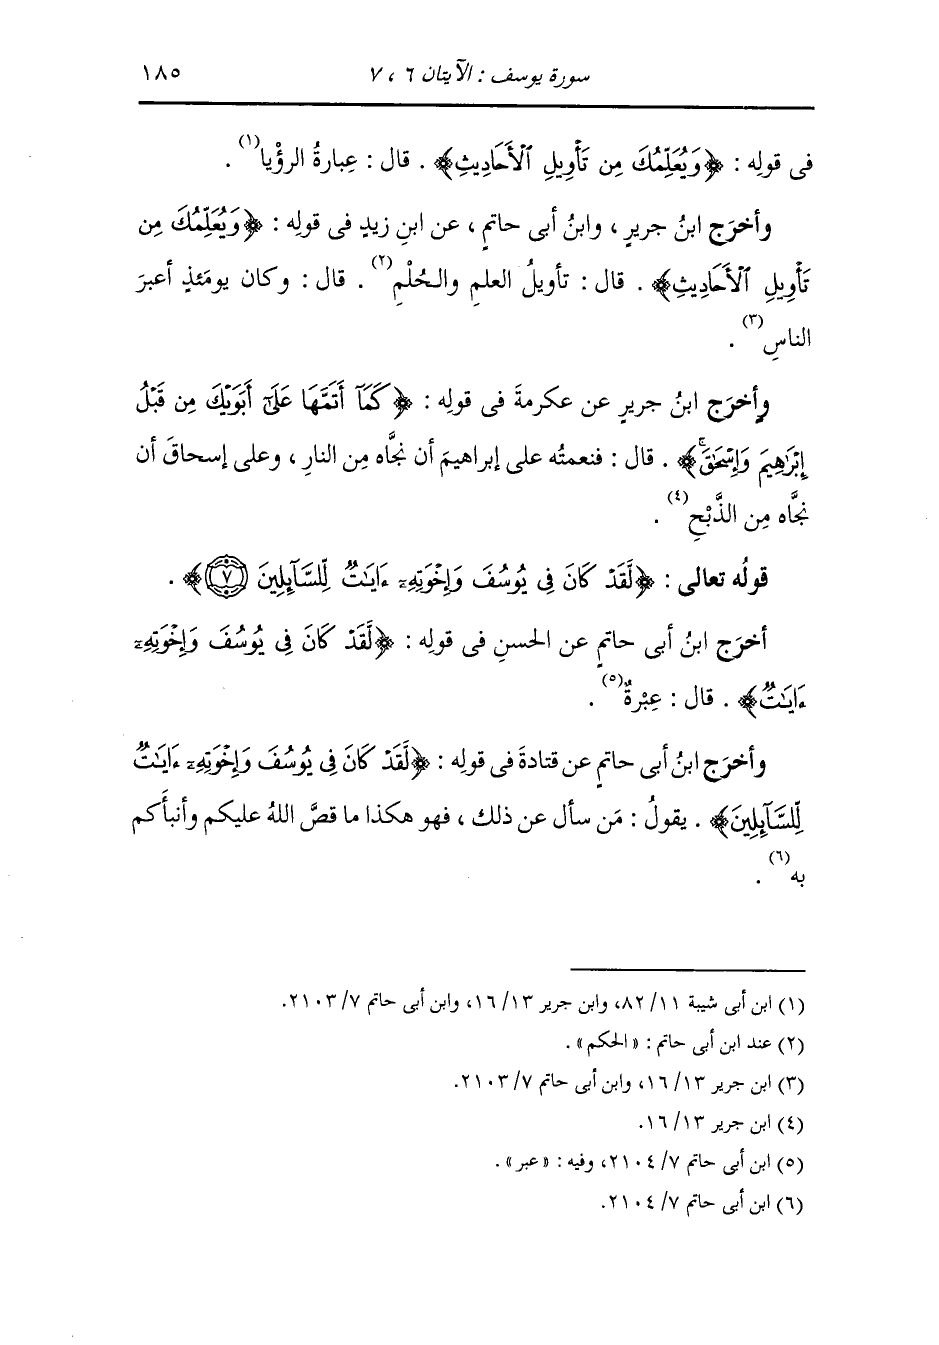 سورة يوسف : الآيتان ٦ ، ٧ ١٨٥
فى قولِه : ﴿وَيُعَلِّمُكَ مِن تَأْوِيلِ ٱلْأَحَادِيثِ﴾ . قال : عِبارةُ الرؤْيا(١) .
وأخرَج ابنُ جريرٍ ، وابنُ أبى حاتمٍ ، عن ابنِ زيدٍ فى قولِه : ﴿وَيُعَلِّمُكَ مِن
تَأْوِيلِ ٱلْأَحَادِيثِ﴾ . قال : تأويلُ العلمِ والحُلْمِ(٢) . قال : وكان يومَئذٍ أعبرَ
الناسِ(٣) .
وأخرَج ابنُ جريرٍ عن عكرمةَ فى قولِه : ﴿كَمَآ أَتَمَّهَا عَلَىٰٓ أَبَوَيْكَ مِن قَبْلُ
إِبْرَٰهِيمَ وَإِسْحَٰقَۚ﴾ . قال : فنعمتُه على إبراهيمَ أن نجَّاه مِن النارِ ، وعلى إسحاقَ أن
نجَّاه مِن الذَّبْحِ(٤) .
قولُه تعالى : ﴿لَّقَدْ كَانَ فِى يُوسُفَ وَإِخْوَتِهِۦٓ ءَايَٰتٌ لِّلسَّآئِلِينَ ٧﴾ .
أخرَج ابنُ أبى حاتمٍ عن الحسنِ فى قولِه : ﴿لَّقَدْ كَانَ فِى يُوسُفَ وَإِخْوَتِهِۦٓ
ءَايَٰتٌ﴾ . قال : عِبْرةٌ(٥) .
وأخرَج ابنُ أبى حاتمٍ عن قتادةَ فى قولِه : ﴿لَّقَدْ كَانَ فِى يُوسُفَ وَإِخْوَتِهِۦٓ ءَايَٰتٌ
لِّلسَّآئِلِينَ﴾ . يقولُ : مَن سأل عن ذلك ، فهو هكذا ما قصَّ اللهُ عليكم وأنبأَكم
به(٦) .
(١) ابن أبى شيبة ١١/ ٨٢، وابن جرير ١٣/ ١٦، وابن أبى حاتم ٧/ ٢١٠٣.
(٢) عند ابن أبى حاتم : «الحكم» .
(٣) ابن جرير ١٣/ ١٦، وابن أبى حاتم ٧/ ٢١٠٣.
(٤) ابن جرير ١٣/ ١٦.
(٥) ابن أبى حاتم ٧/ ٢١٠٤، وفيه : «عبر» .
(٦) ابن أبى حاتم ٧/ ٢١٠٤.